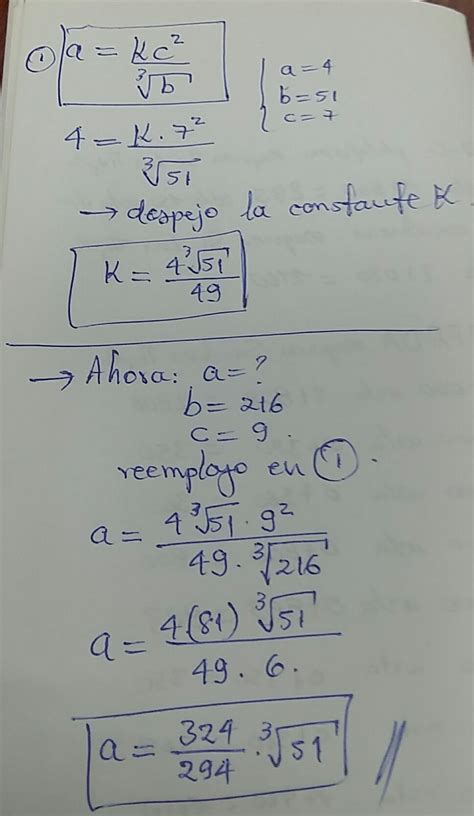 ① a = Kc² / ∛b
a = 4
b = 51
c = 7
4 = K · 7² / ∛51
→ despejo la constante K.
K = 4∛51 / 49
→ Ahora: a = ?
b = 216
c = 9.
reemplazo en ①.
a = 4∛51 · 9² / 49 · ∛216
a = 4(81) ∛51 / 49 · 6.
a = 324 / 294 · ∛51 //